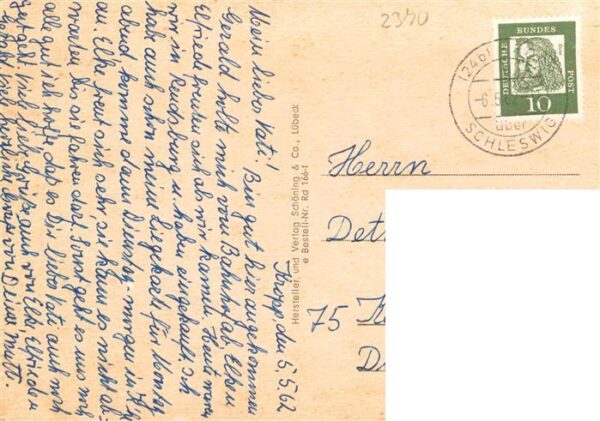 2340
(24b)
-6.5.62
über
SCHLESWIG
DEUTSCHE BUNDES POST
10
Kropp, den 5.5.62
Mein lieber Vati! Bin gut hier angekommen
Gerald holt mich vom Bahnhof ab. Elke u.
Elfriede freuten sich als wir kamen. Heute waren
wir in Rendsburg u. haben eingekauft. Ich
hab auch schon meine Liegekarte für Montag
abend, komme dann Dienstag morgen in K.
an. Elke freut sich sehr sie kann es nicht ab-
warten bis sie fahren darf. Sonst geht es uns noch
alle gut ich hoffe daß es Dir lieber Vati auch noch
gut geht. Viele liebe Grüße auch von Elke, Elfriede u.
Gerald und herzliche Grüße von Deiner Mutti.
Hersteller und Verlag Schöning & Co., Lübeck
e Bestell-Nr. Rd 166-I
Herrn
Det
75 K
D